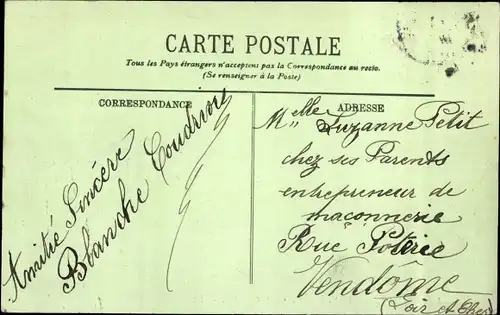 CARTE POSTALE
Tous les Pays étrangers n'acceptent pas la Correspondance au recto.
(Se renseigner à la Poste)
CORRESPONDANCE
Amitié Sincère
Blanche
ADRESSE
Melle Suzanne Petit
chez ses Parents
entrepreneur de
maçonnerie
Rue Poterie
Vendôme
(Loir et Cher)